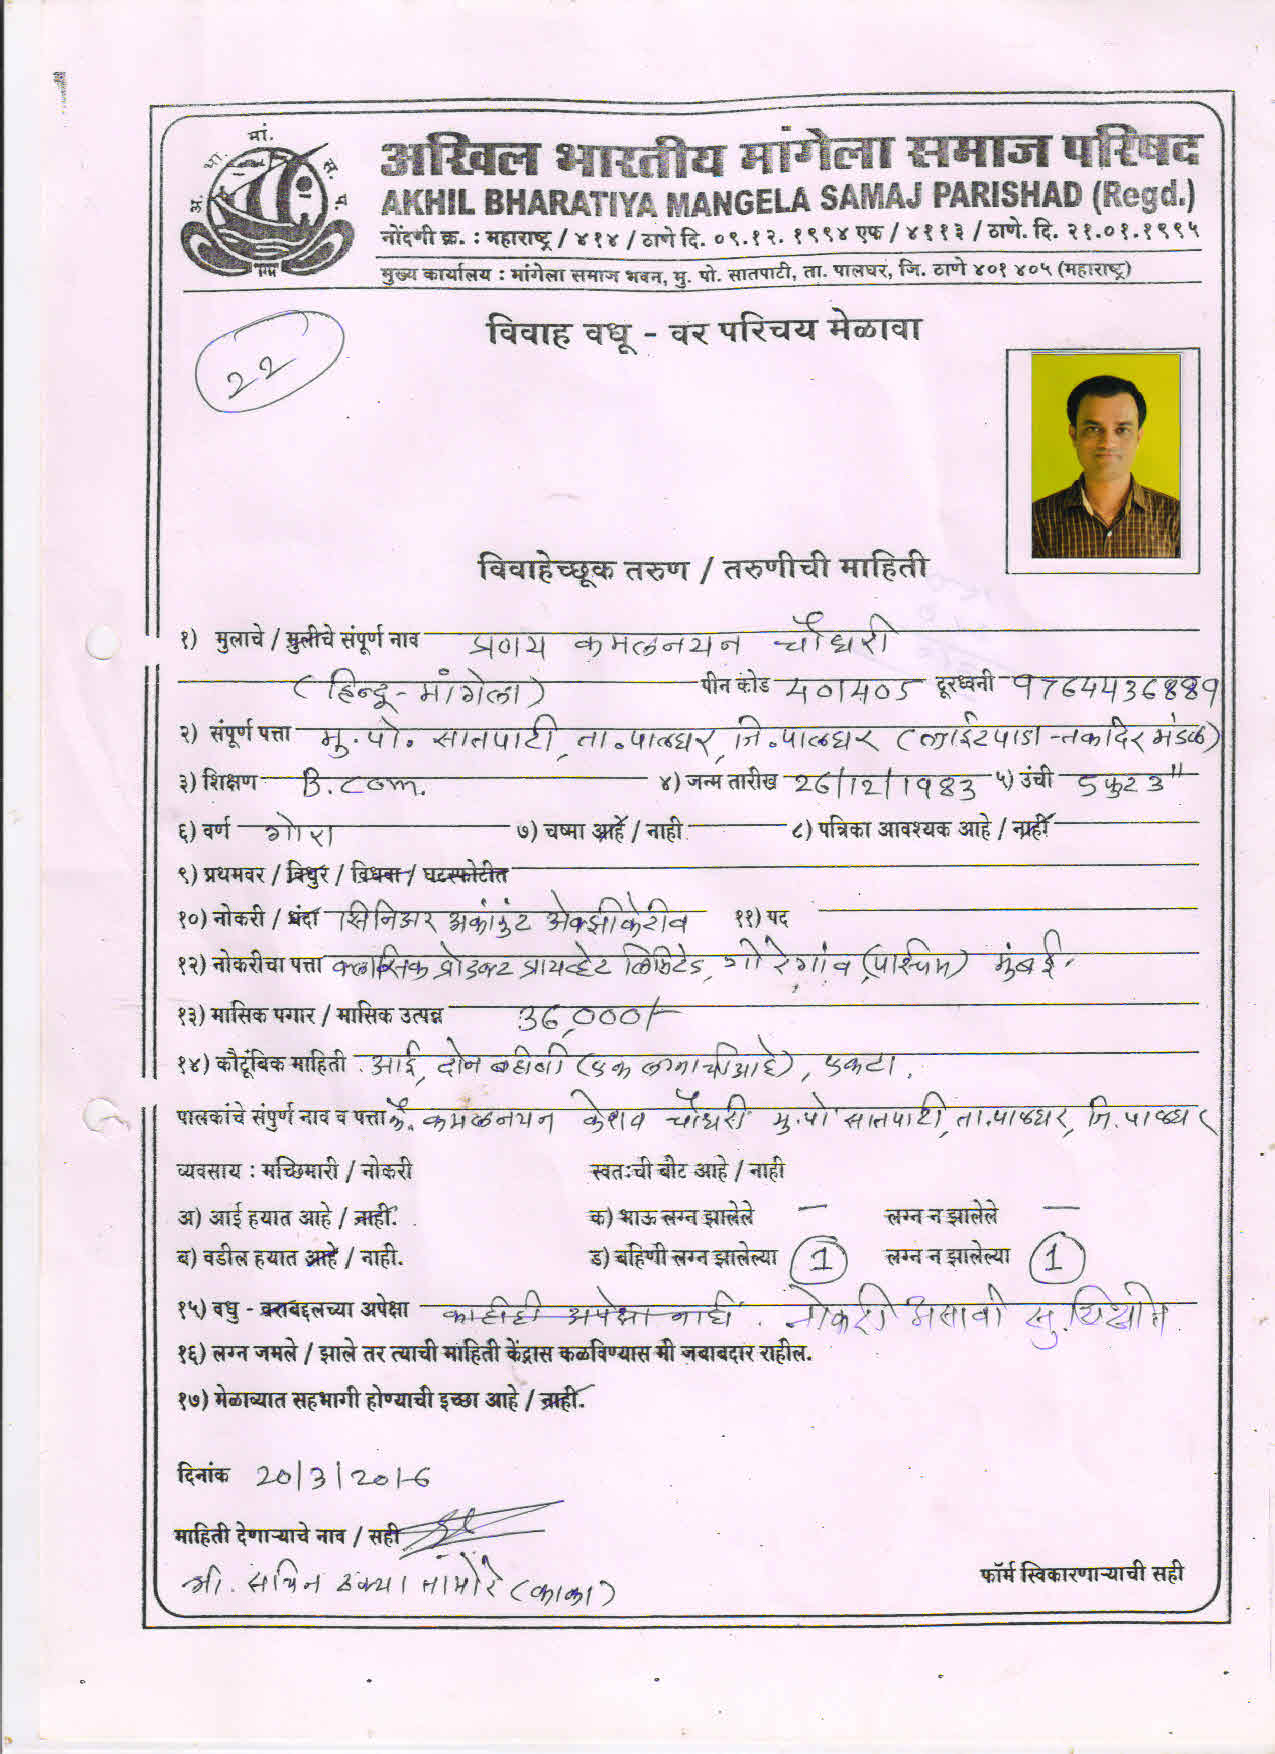 अ. भा. मां. स. प.
अखिल भारतीय मांगेला समाज परिषद
AKHIL BHARATIYA MANGELA SAMAJ PARISHAD (Regd.)
नोंदणी क्र. : महाराष्ट्र / ४१४ / ठाणे दि. ०९.१२. १९९४ एफ / ४११३ / ठाणे. दि. २१.०१.१९९५
मुख्य कार्यालय : मांगेला समाज भवन, मु. पो. सातपाटी, ता. पालघर, जि. ठाणे ४०१ ४०५ (महाराष्ट्र)
विवाह वधू - वर परिचय मेळावा
२२
विवाहेच्छूक तरुण / तरुणीची माहिती
१) मुलाचे / मुलीचे संपूर्ण नाव प्रणय कमलनयन चौधरी
(हिन्दू - मांगेला) पीन कोड 401405 दूरध्वनी 9764436889
२) संपूर्ण पत्ता मु. पो. सातपाटी, ता. पाळघर, जि. पाळघर (लाईटपाडा - तकादिर मंडळ)
३) शिक्षण B.com. ४) जन्म तारीख 26/12/1983 ५) उंची 5 फुट 3"
६) वर्ण गोरा ७) चष्मा आहे / नाही ८) पत्रिका आवश्यक आहे / नाही
९) प्रथमवर / विधुर / विधवा / घटस्फोटीत
१०) नोकरी / धंदा सिनिअर अकांउंट अेक्झीकेटीव ११) पद
१२) नोकरीचा पत्ता क्लासिक प्रोडक्ट प्रायव्हेट लिमिटेड, गोरेगांव (पश्चिम) मुंबई.
१३) मासिक पगार / मासिक उत्पन्न 36,000/-
१४) कौटूंबिक माहिती आई, दोन बहीणी (एक लग्नाची आहे), एकटा.
पालकांचे संपुर्ण नाव व पत्ता कै. कमळनयन केशव चौधरी मु. पो सातपाटी, ता. पाळघर, जि. पाळघर
व्यवसाय : मच्छिमारी / नोकरी स्वतःची बोट आहे / नाही
अ) आई हयात आहे / नाही. क) भाऊ लग्न झालेले — लग्न न झालेले —
ब) वडील हयात आहे / नाही. ड) बहिणी लग्न झालेल्या 1 लग्न न झालेल्या 1
१५) वधु - वराबद्दलच्या अपेक्षा काहीही अपेक्षा नाही. नोकरी असावी
१६) लग्न जमले / झाले तर त्याची माहिती केंद्रास कळविण्यास मी जबाबदार राहील.
१७) मेळाव्यात सहभागी होण्याची इच्छा आहे / नाही.
दिनांक 20/3/2016
माहिती देणाऱ्याचे नाव / सही
श्री. सचिन तामोरे (काका)
फॉर्म स्विकारणाऱ्याची सही